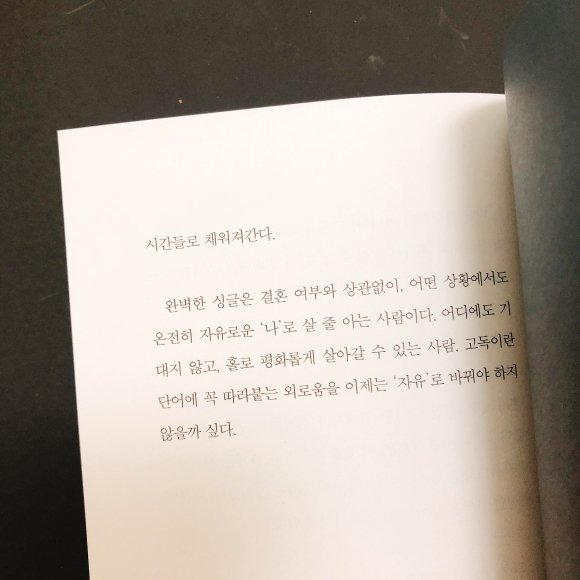 시간들로 채워져간다.
완벽한 싱글은 결혼 여부와 상관없이, 어떤 상황에서도
온전히 자유로운 ‘나’로 살 줄 아는 사람이다. 어디에도 기
대지 않고, 홀로 평화롭게 살아갈 수 있는 사람. 고독이란
단어에 꼭 따라붙는 외로움을 이제는 ‘자유’로 바꿔야 하지
않을까 싶다.